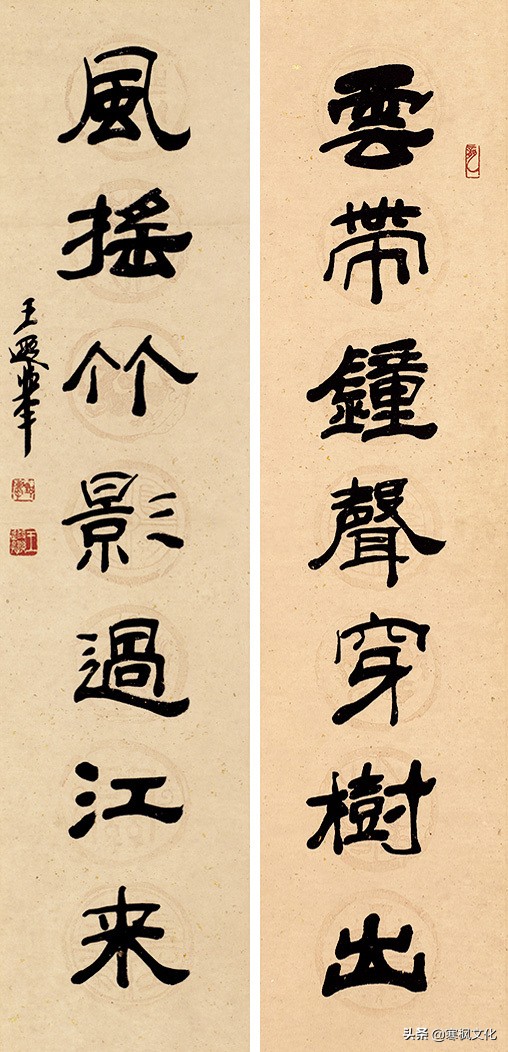 雲帶鐘聲穿樹出
風搖竹影過江来
头条 @寒枫文化